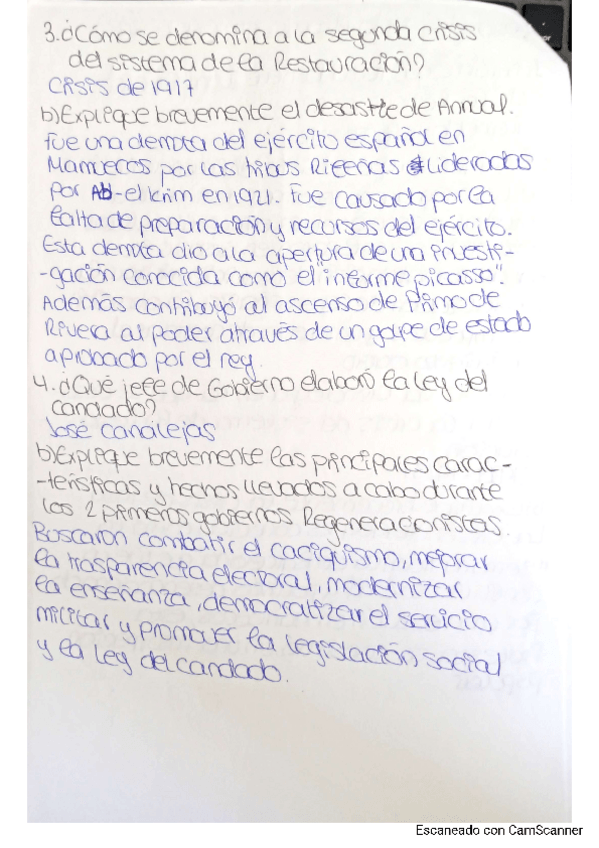 3. ¿Cómo se denomina a la segunda crisis
del sistema de la Restauración?
Crisis de 1917
b) Explique brevemente el desastre de Annual.
Fue una derrota del ejército español en
Marruecos por las tribus Rifeñas lideradas
por Ab-el Krim en 1921. Fue causado por la
falta de preparación y recursos del ejército.
Esta derrota dio a la apertura de una investi-
-gación conocida como el "informe picasso".
Además contribuyó al ascenso de Primo de
Rivera al poder através de un golpe de estado
aprobado por el rey.
4. ¿Qué jefe de Gobierno elaboró la Ley del
candado?
José Canalejas
b) Explique brevemente las principales carac-
-terísticas y hechos llevados a cabo durante
los 2 primeros gobiernos Regeneracionistas.
Buscaron combatir el caciquismo, mejorar
la trasparencia electoral, modernizar
la enseñanza, democratizar el servicio
militar y promover la legislación social
y la Ley del candado.
Escaneado con CamScanner